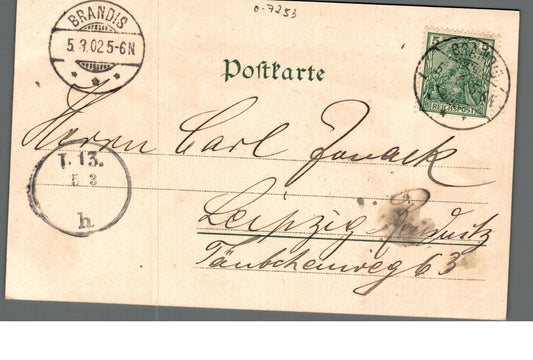 o-7253
BRANDIS
5.3.02 5-6N
Postkarte
5
BRANDIS
REICHSPOST
Herrn Carl Jonack
I. 13.
5 3
h
Leipzig Reudnitz
Täubchenweg 63